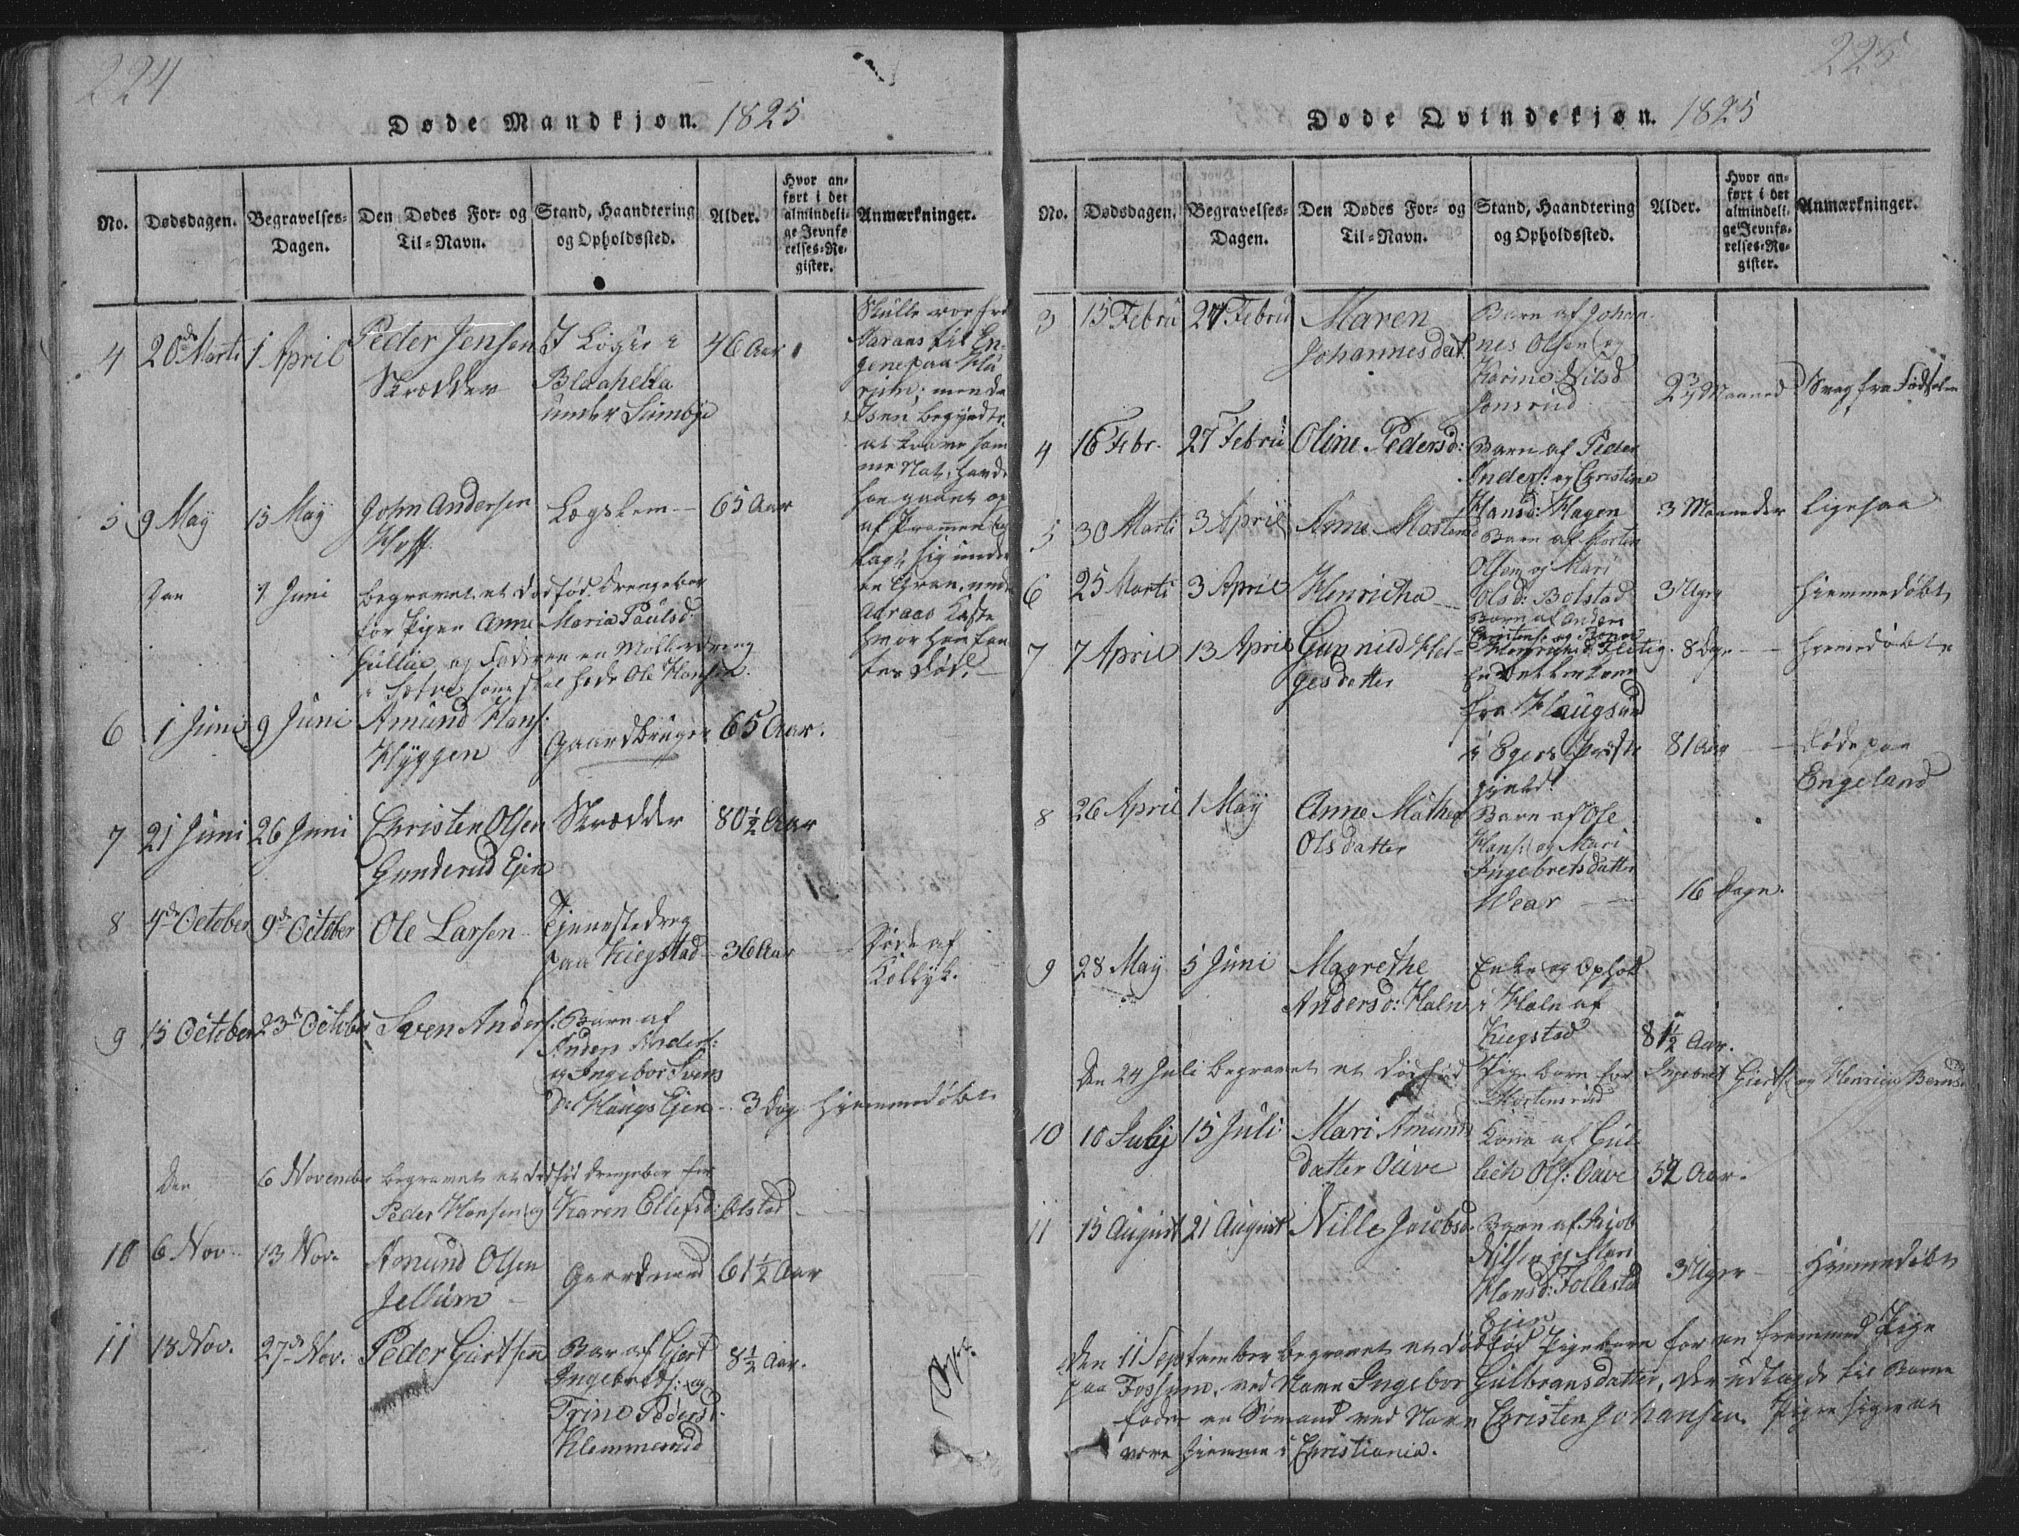 224
Døde Mandkjøn. 1825
No.
Dødsdagen.
Begravelses-
Dagen.
Den Dødes For- og
Til-Navn.
Stand, Haandtering
og Opholdssted.
Alder.
Hvor an-
ført i det
almindeli-
ge Jevnfø-
relses-Re-
gister.
Anmærkninger.
4 20de Marti 1 April Peder Jensen
Skrædder
I Logie i
under Sumbye
46 Aar
Skulle roe fra
Aaraas til En-
gene paa
men da
Isen begyndte
me Nat, havde
han gaaet op
af Prammen og
lagt sig under
en Gran, ved
Aaraas
hvor han fan-
tes død.
5 9 May 15 May John Andersen
Hoff
Lægslem 65 Aar
Den 9 Juni begravet et dødfød drengebar
for Pigen Anne Maria Paulsd:
Gullie, og Faderen en Møllerdreng
i Sætre, som skal hede Ole Hansen.
6 1 Juni 9 Juni Amund Hans:
Hyggen
Gaardbruger 65 Aar.
7 21 Juni 26 Juni Christen Olsen
Gunderud Ejer
Skrædder 80 1/2 Aar
8 4de October 9de October Ole Larsen
Tjenestedreg
paa Kiegstad 36 Aar
Døde af
Kollyk.
9 15 October 23de October Sven Anders:
Barn af
Anders Anders:
og Ingebor Svens
Dr Haugs Ejer 3 Dag Hjemmedøbt
Den 6 November begravet et dødfød drengebar for
Peder Hansen og Karen Ellefsd: Olstad
10 6 Nov. 13 Nov. Amund Olsen
Jellum
Gaardmand 61 1/2 Aar
11 18 Nov. 27de Nov. Peder Giertsen
Bar af Giert
Ingebrets: og
Trine Pedersd.
Klemmerud
8 1/2 Aar.
225
Døde Qvindekjøn. 1825
No.
Dødsdagen.
Begravelses-
Dagen.
Den Dødes For- og
Til-Navn.
Stand, Haandtering
og Opholdssted.
Alder.
Hvor an-
ført i det
almindeli-
ge Jevnfø-
relses-Re-
gister.
Anmærkninger.
3 15 Febru 27 Febru Maren
Johannesdat
Barn af Johan-
nes Olsen og
Karine Nilsd
Jonsrud
Maaned Svag fra Fødselen
4 16 Febr. 27 Febru Oline Pedersd:
Barn af Peder
Anders: og Christine
Hansd: Hagen
3 Maaneder ligesaa
5 30 Marti 3 April Anne Mortensd
Barn af Morten
Olsen og Mari
Olsd: Bolstad
3 Uger Hjemmedøbt
6 25 Marti 3 April Henricha
Barn af Anders
8 Dge Hjemedøbt
7 7 April 13 April Gunnild Hel-
gesdatter
fra Haugsund
i Egers Præste
gjeld.
81 Aar
Døde paa
Engeland
8 26 April 1 May Anne Mathea
Olsdatter
Barn af Ole
Hans: og Mari
Ingebretsdatter
Wear
16 Dage.
9 28 May 5 Juni Magrethe
Andersd: Haln
Enke og Ophold
i Haln af
Kiegstad
81 1/2 Aar.
Den 24 Juli begravet et dødfød Pige barn for Ingebret Gierts: og Henrica Bernsd
Mortensrud
10 10 July 15 Juli Mari Amunds
datter Ouve
Kone af Gul-
lich Ols: Ouve
52 Aar.
11 15 August 21 August Nille Jacobsd.
Barn af Jacob
Nilsen og Mari
Hansd: Follestad
Ejer
3 Uger Hjemmedøbt
Den 11 September begravet et dødfød Pigebarn for en fremmed Pige
paa Fossum, ved Navn Ingebor Gulbransdatter, der udlagde til Barne
fader en Sømand ved Navn Christen Johansen. Pigen siges at
være hjemme i Christiania.